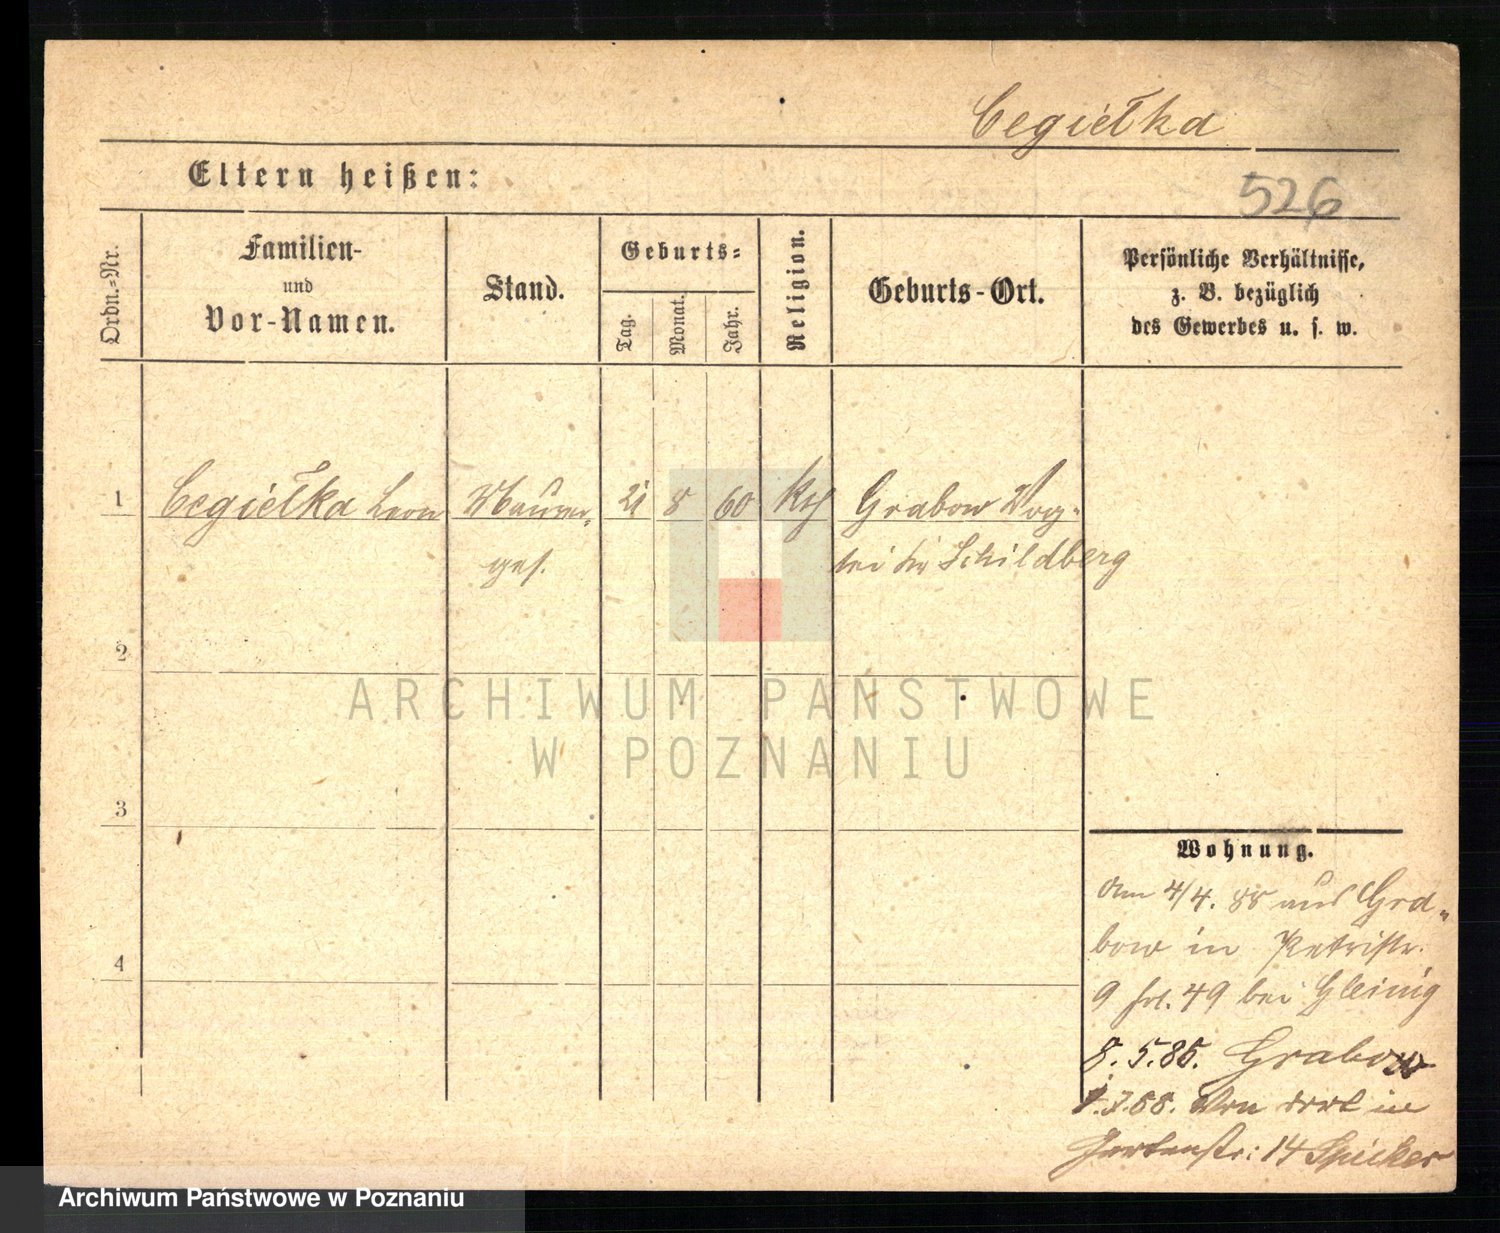 Cegiełka
Eltern heißen:
526
Ordn.=Nr.
Familien-
und
Vor-Namen.
Stand.
Geburts=
Tag.
Monat.
Jahr.
Religion.
Geburts-Ort.
Persönliche Verhältnisse,
z. B. bezüglich
des Gewerbes u. s. w.
1 Cegiełka Leon Maurer- 21 8 60 Kth Grabow Vog-
ges. tei Kr Schildberg
2
ARCHIWUM PAŃSTWOWE
W POZNANIU
3
Wohnung.
Am 4/4. 85 aus Gra-
4
bow in Petristr.
9 frl. 49 bei Gleinig
8.5.85. Grabow
1.7.88. Von dort in
Gartenstr: 14 Speicher
Archiwum Państwowe w Poznaniu